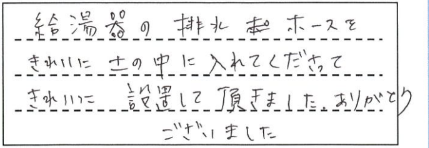 給湯器の排水ホースを
きれいに土の中に入れてくださって
きれいに設置して頂きました。ありがとう
ございました